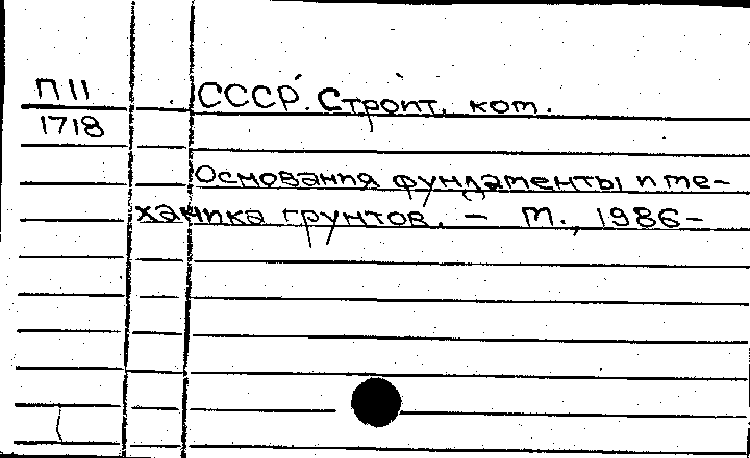 П 11
1718
СССР. Строит. ком.
Основания фундаменты и ме-
ханика грунтов. – М., 1986–